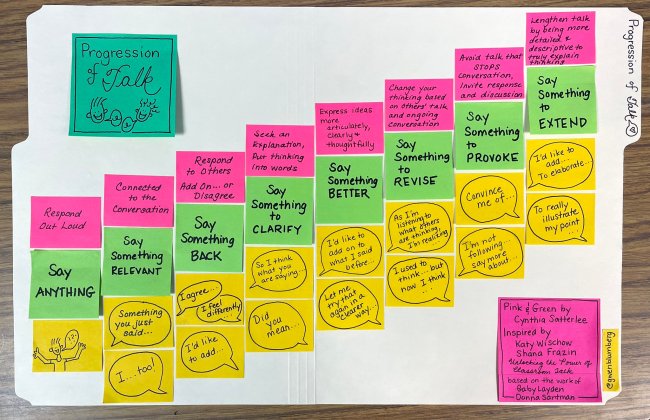 Progression
of Talk
Respond
Out Loud
Say
ANYTHING
Connected to the
Conversation
Say
Something
RELEVANT
Something
you just
said...
I...too!
Respond
to Others
Add On... or
Disagree
Say
Something
BACK
I agree...
I feel
differently
I'd like
to add...
Seek an
Explanation,
Put thinking
into words
Say
Something
to
CLARIFY
So I think
what you
are saying...
Did
you
mean...
Express ideas
more
articulately,
clearly &
thoughtfully
Say
Something
BETTER
I'd like to
add on to
what I said
before...
Let me
try that
again in a
clearer
way...
Change your
thinking based
on others' talk
and ongoing
conversation
Say
Something
to
REVISE
As I'm
listening to
what others
are thinking
I'm realizing
I used to
think... but
now I think
...
Avoid talk that
STOPS
conversation,
Invite response
and discussion
Say
Something
to
PROVOKE
Convince
me of...
I'm not
following...
say more
about...
Lengthen talk
by being more
detailed &
descriptive to
truly explain
thinking
Say
Something
to
EXTEND
I'd like to
add...
To elaborate...
To really
illustrate
my point
...
Progression of Talk
Pink & Green by
Cynthia Satterlee
Inspired by
Katy Wischow
Shana Frazin
Unlocking the Power of
Classroom Talk
based on the work of
Gaby Layden
Donna Santman
@gwenblumberg